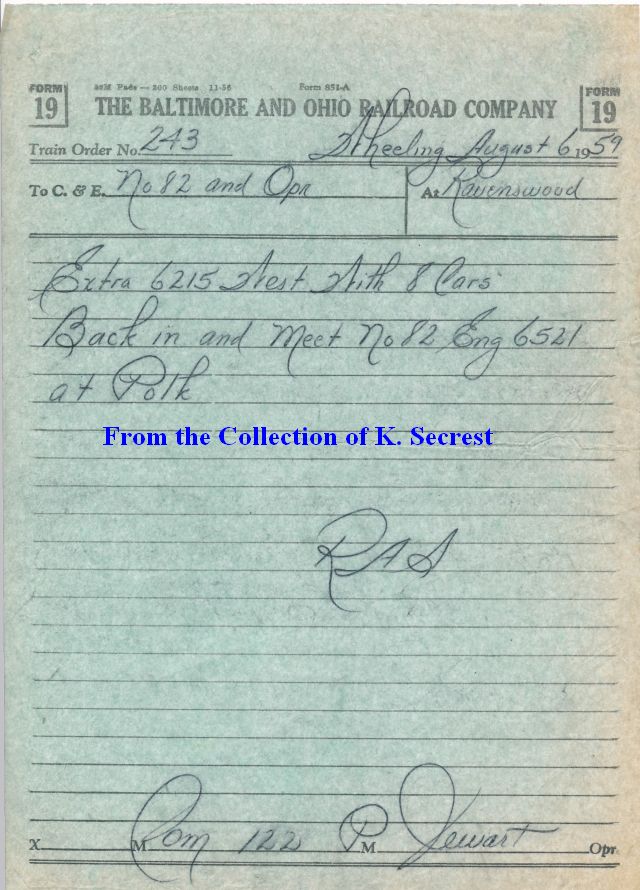 FORM 19
Form 851-A
FORM 19
THE BALTIMORE AND OHIO RAILROAD COMPANY
Train Order No. 243 Wheeling August 6 1959
To C. & E. No 82 and Opr At Ravenswood
Extra 6215 West With 8 Cars
Back in and Meet No 82 Eng 6521
at Polk
From the Collection of K. Secrest
RAS
X M Com 122 P M Jewart Opr